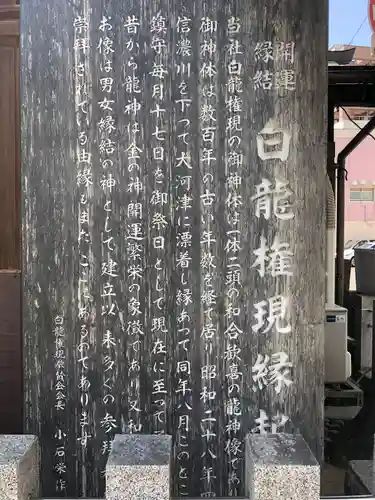 開運
縁結
白龍権現縁起
当社白龍権現の御神体は一体二頭の和合歓喜の龍神像であ
御神体は数百年の古い年数を経て居 昭和二十八年
信濃川を下つて大河津に漂着し縁あつて同年八月このと
鎮守 毎月十七日を御祭日として現在に至つて
昔から龍神は金の神 開運繁栄の象徴であり又和
お像は男女縁結の神として建立以来多くの参拝
崇拝されている由縁もまたここにあるのであります
白龍権現奉賛会会長 小石栄作